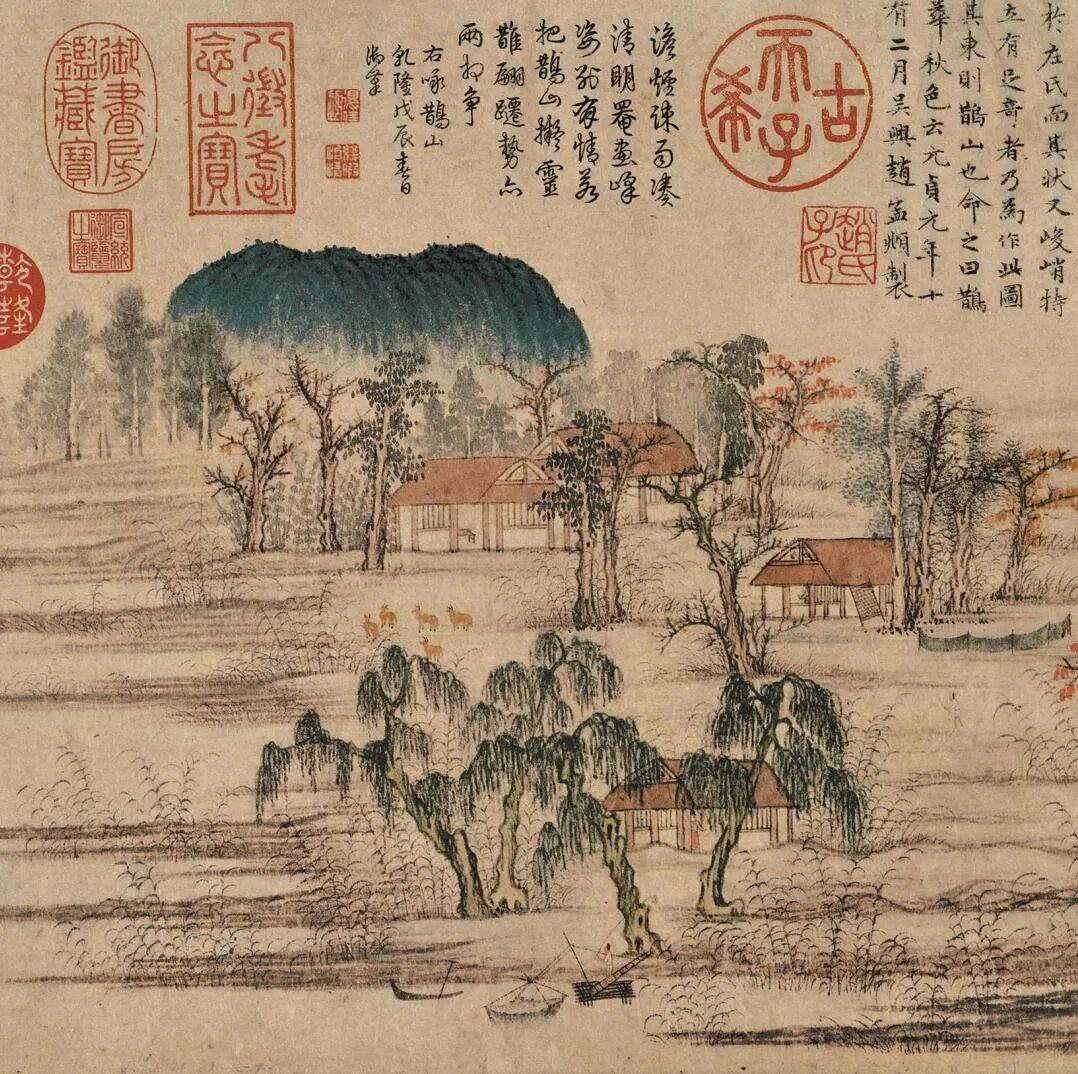 於左氏而其狀又峻峭特
立有足奇者乃為作此圖
其東則鵲山也命之曰鵲
華秋色云元貞元年十
有二月吳興趙孟頫製
趙氏子印
古希天子
澹煙疎雨湊
清明罨畫峰
姿有情若
把鵲山擬靈
鵲翩躚勢亦
兩相爭
右咏鵲山
乾隆戊辰春日
御筆
八徵耄念之寶
御書房鑑藏寶
宣統御覽之寶
乾隆